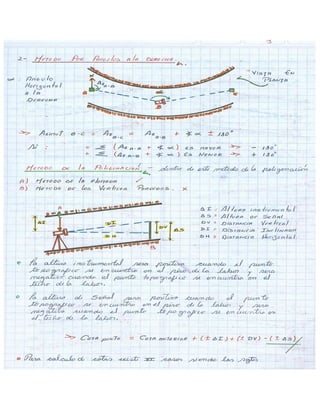 3
2- Metodo Por Angulos a la Derecha
Vista En
Planta
α : Angulo
Horizontal
a la
Derecha
N
Az A-B
A
B
C
Azimut B-C = Az B-C = Az A-B + ∢α ± 180°
Si : = Σ (Az A-B + ∢α) es mayor - 180°
= Σ (Az A-B + ∢α) es menor + 180°
Metodo de la Poligonacion - dentro de este método de la poligonación
A) Metodo de la Plomada ✓
B) Metodo de los Vertices Perdidos. x
A
ΔI
DI
DV
ΔS
DH
B
ΔI = Altura instrumental
ΔS = Altura de Señal
DV = Distancia Vertical
DI = Distancia Inclinada
DH = Distancia Horizontal.
la altura instrumental sera positiva cuando el punto
topografico se encuentre en el piso de la labor y sera
negativa cuando el punto topografico se encuentre en el
techo de la labor.
la altura de Señal sera positiva cuando el punto
topografico se encuentre en el piso de la labor y sera
negativa cuando el punto topografico se encuentre en
el techo de la labor.
Cota punto = Cota anterior + (± ΔI) + (± DV) - (± ΔS)
Para calculo de cotas existe III casos siendo los sgtes